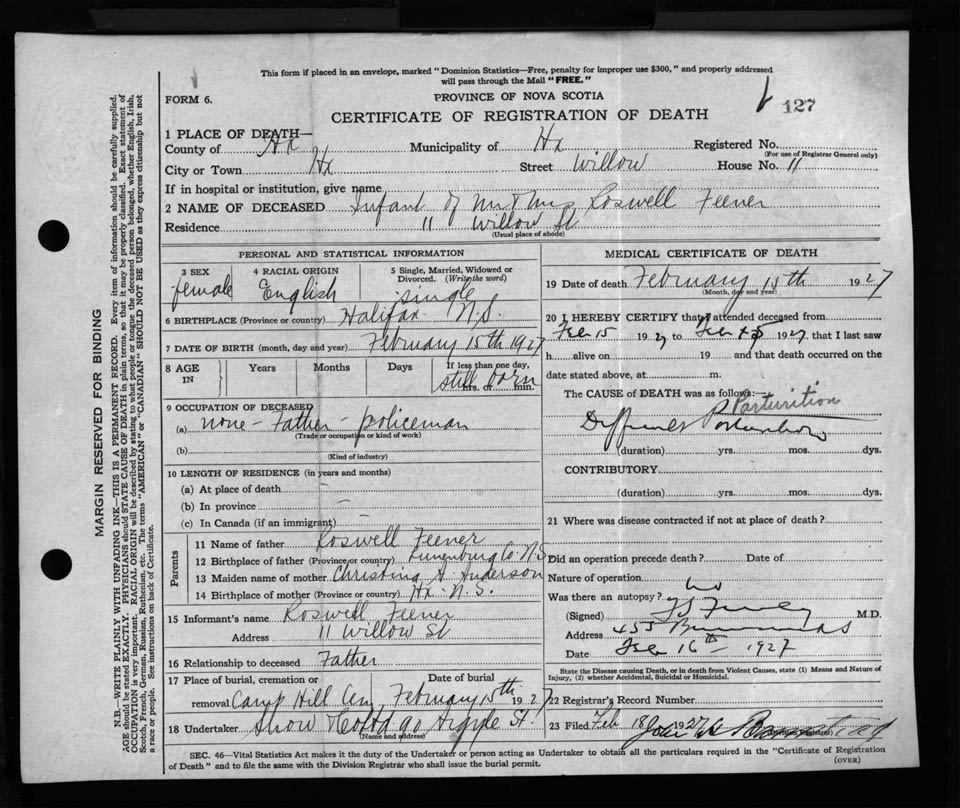 This form if placed in an envelope, marked "Dominion Statistics—Free, penalty for improper use $300," and properly addressed
will pass through the Mail "FREE."
FORM 6.
PROVINCE OF NOVA SCOTIA
127
CERTIFICATE OF REGISTRATION OF DEATH
1 PLACE OF DEATH—
County of Hx Municipality of Hx Registered No.
(For use of Registrar General only)
City or Town Hx Street Willow House No. 11
If in hospital or institution, give name
2 NAME OF DECEASED Infant of Mr & Mrs Roswell Feener
Residence 11 Willow St
(Usual place of abode)
PERSONAL AND STATISTICAL INFORMATION
3 SEX 4 RACIAL ORIGIN 5 Single, Married, Widowed or
Divorced. (Write the word)
female English single
6 BIRTHPLACE (Province or country) Halifax N.S.
7 DATE OF BIRTH (month, day and year) February 15th 1927
8 AGE IN Years Months Days If less than one day,
hrs. or min.
still born
9 OCCUPATION OF DECEASED
(a) none - Father - policeman
(Trade or occupation or kind of work)
(b)
(Kind of industry)
10 LENGTH OF RESIDENCE (in years and months)
(a) At place of death —
(b) In province —
(c) In Canada (if an immigrant) —
Parents
11 Name of father Roswell Feener
12 Birthplace of father (Province or country) Lunenburg Co N.S.
13 Maiden name of mother Christina A Anderson
14 Birthplace of mother (Province or country) Hx. N.S.
15 Informant's name Roswell Feener
Address 11 Willow St
16 Relationship to deceased Father
17 Place of burial, cremation or Date of burial
removal Camp Hill Cem February 15th 1927
18 Undertaker Snow & Co Ltd 90 Argyle St.
(Name and address)
MEDICAL CERTIFICATE OF DEATH
19 Date of death February 15th 1927
(Month, day and year)
20 I HEREBY CERTIFY that I attended deceased from
Feb 15 1927 to Feb 15 1927 that I last saw
h alive on 19 and that death occurred on the
date stated above, at m.
The CAUSE OF DEATH was as follows:—
Parturition
Difficult Parturition
(duration) yrs. mos. dys.
CONTRIBUTORY
(duration) yrs. mos. dys.
21 Where was disease contracted if not at place of death?
Did an operation precede death? Date of
Nature of operation
Was there an autopsy? no
(Signed) M.D.
Address 455
Date Feb 16th 1927
State the Disease causing Death, or in death from Violent Causes, state (1) Means and Nature of
Injury, (2) whether Accidental, Suicidal or Homicidal.
22 Registrar's Record Number
23 Filed Feb 18 1927 John A
(Division Registrar)
SEC. 46—Vital Statistics Act makes it the duty of the Undertaker or person acting as Undertaker to obtain all the particulars required in the "Certificate of Registration
of Death" and to file the same with the Division Registrar who shall issue the burial permit.
(OVER)
MARGIN RESERVED FOR BINDING
N.B.—WRITE PLAINLY WITH UNFADING INK—THIS IS A PERMANENT RECORD. Every item of information should be carefully supplied.
AGE should be stated EXACTLY. PHYSICIANS should STATE CAUSE OF DEATH in plain terms, so that it may be properly classified. Exact statement of
OCCUPATION is very important. RACIAL ORIGIN will be described by stating to what people or tongue the deceased person belonged, whether English, Irish,
Scotch, French, German, Russian, Ruthenian, etc. The terms "AMERICAN" or "CANADIAN" SHOULD NOT BE USED as they express citizenship but not
a race or people. See instructions on back of Certificate.